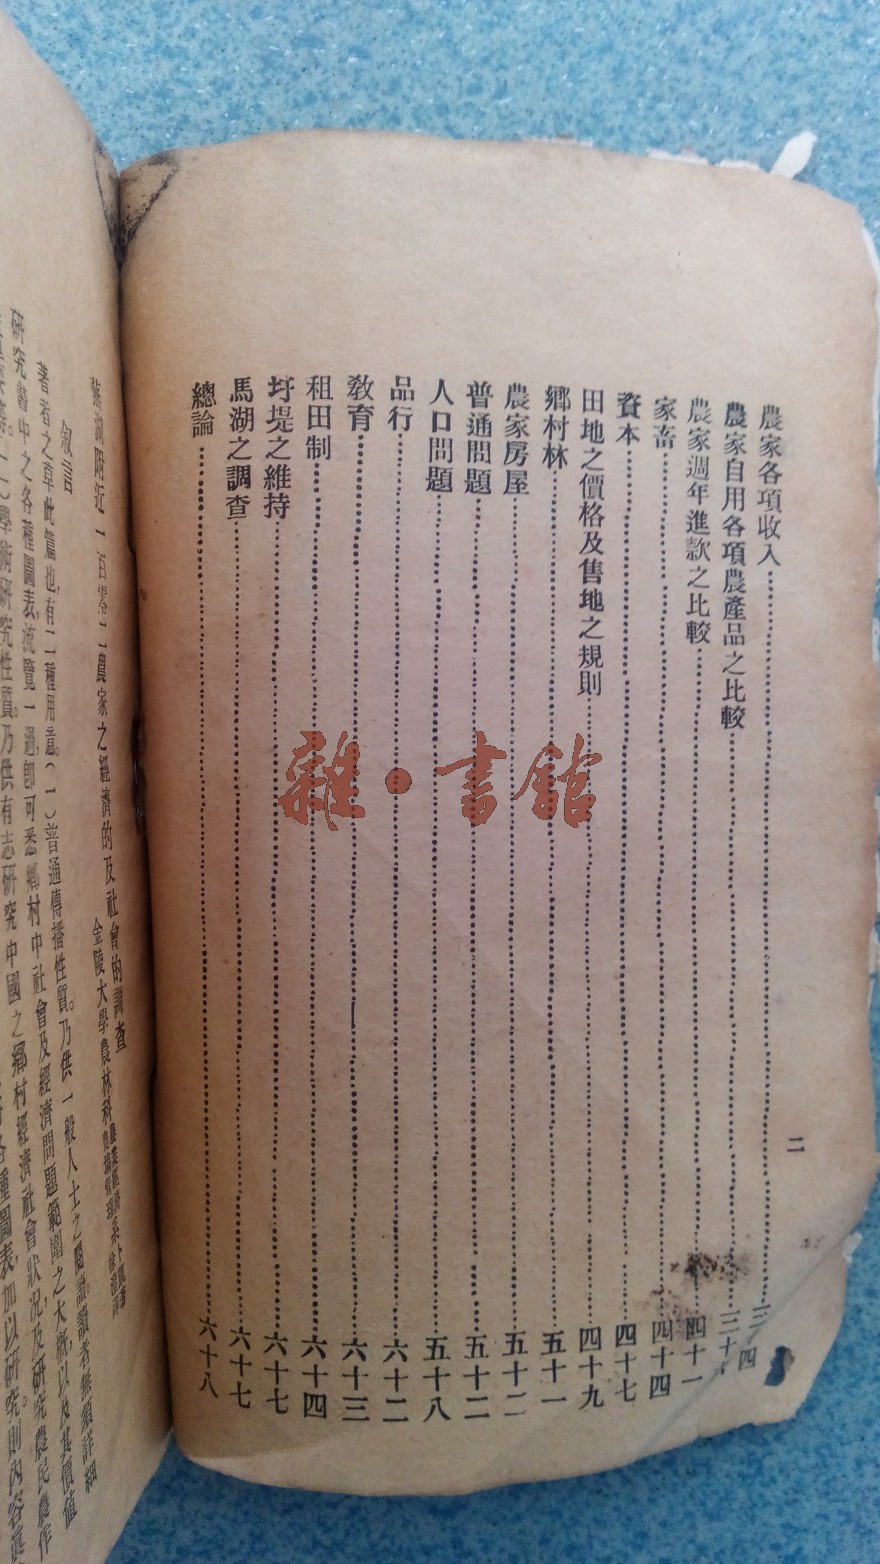 農家各項收入
農家自用各項農產品之比較
農家週年進款之比較 四十一
家畜 四十四
資本 四十七
田地之價格及售地之規則 四十九
鄉村林 五十一
農家房屋 五十二
普通問題 五十二
人口問題 五十八
品行 六十二
教育 六十三
租田制 六十四
圩堤之維持 六十七
馬湖之調查 六十七
總論 六十八
二
蕪湖附近一百零二農家之經濟的及社會的調查
金陵大學農林科
叙言
著者之草此篇也,有二種用意。(一)普通傳播性質。乃供一般人士之閱讀。讀者無須詳細
研究書中之各種圖表,流覽一過,卽可悉鄉村中社會及經濟問題範圍之大概,以及其價值
(二)學術研究性質。乃供有志研究中國之鄉村經濟社會狀況,及研究農民農作
各種圖表,加以研究。則內容
雜·書館